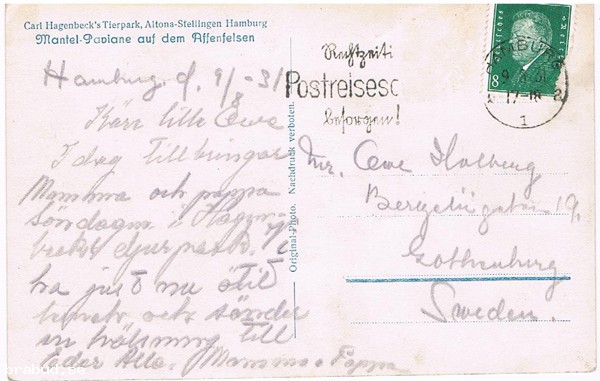 Carl Hagenbeck's Tierpark, Altona-Stellingen Hamburg
Mantel-Paviane auf dem Affenfelsen
Hamburg. d. 9/8 - 31
Kära lille Owe
I dag tillbringar
Mamma och pappa
söndagen i Hagen
becks djurpark. Vi
ha just nu ätit
och sänder
en hälsning till
Eder Alla. Mamma o Pappa
Original-Photo. Nachdruck verboten.
Rechtzeiti
Postreisesc
besorgen!
HAMBURG
9.8.31
17-18
1
Deutsches Reich
8
Mr. Owe Holberg
19.
Gothenburg
Sweden.
brabud.se